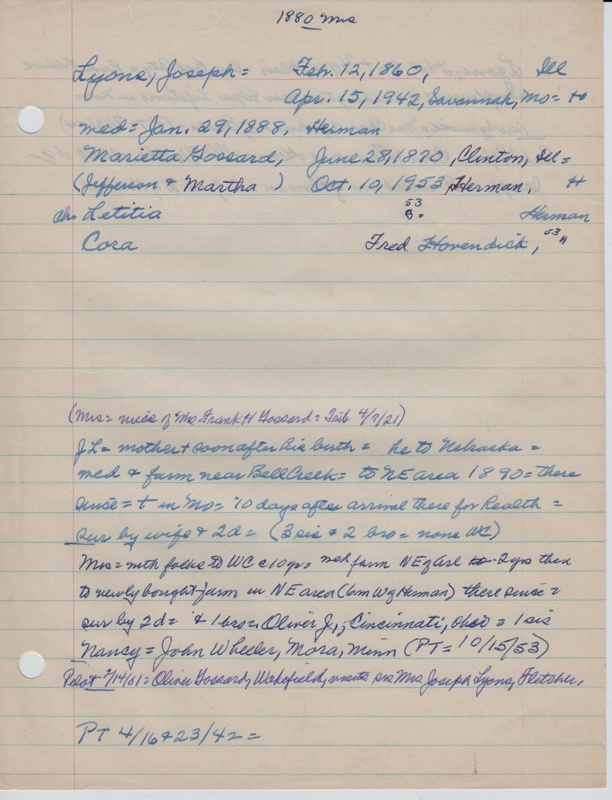 1880 Mrs
Lyons, Joseph = Feb. 12, 1860, Ill
Apr. 15, 1942, Savannah, Mo = H
med = Jan. 29, 1888, Herman
Marietta Gossard, June 28, 1870, Clinton, Ill =
(Jefferson & Martha ) Oct. 10, 1953, Herman, H
ch. Letitia 53 B. Herman
Cora Fred Hovendick, 53 H
(Mrs = niece of Mrs Frank H Gossard = Trib 4/7/21)
JL = mother + soon after his birth = he to Nebraska =
med & farm near Bell Creek = to NE area 1890 = there
since = + in Mo = 10 days after arrival there for health =
sur by wife & 2d = (3 sis & 2 bro = none WC)
Mrs = with folks to WC @ 10 yrs med farm NE of Arl 2 yrs then
to newly bought farm in NE area (6 m W of Herman) there since =
sur by 2d = & 1 bro = Oliver J., Cincinnati, Ohio = 1 sis
Nancy = John Wheeler, Mora, Minn (PT = 10/15/53)
Pilot 2/14/01 = Oliver Gossard, Wakefield, visits sis Mrs Joseph Lyons, Fletcher,
PT 4/16 & 23/42 =